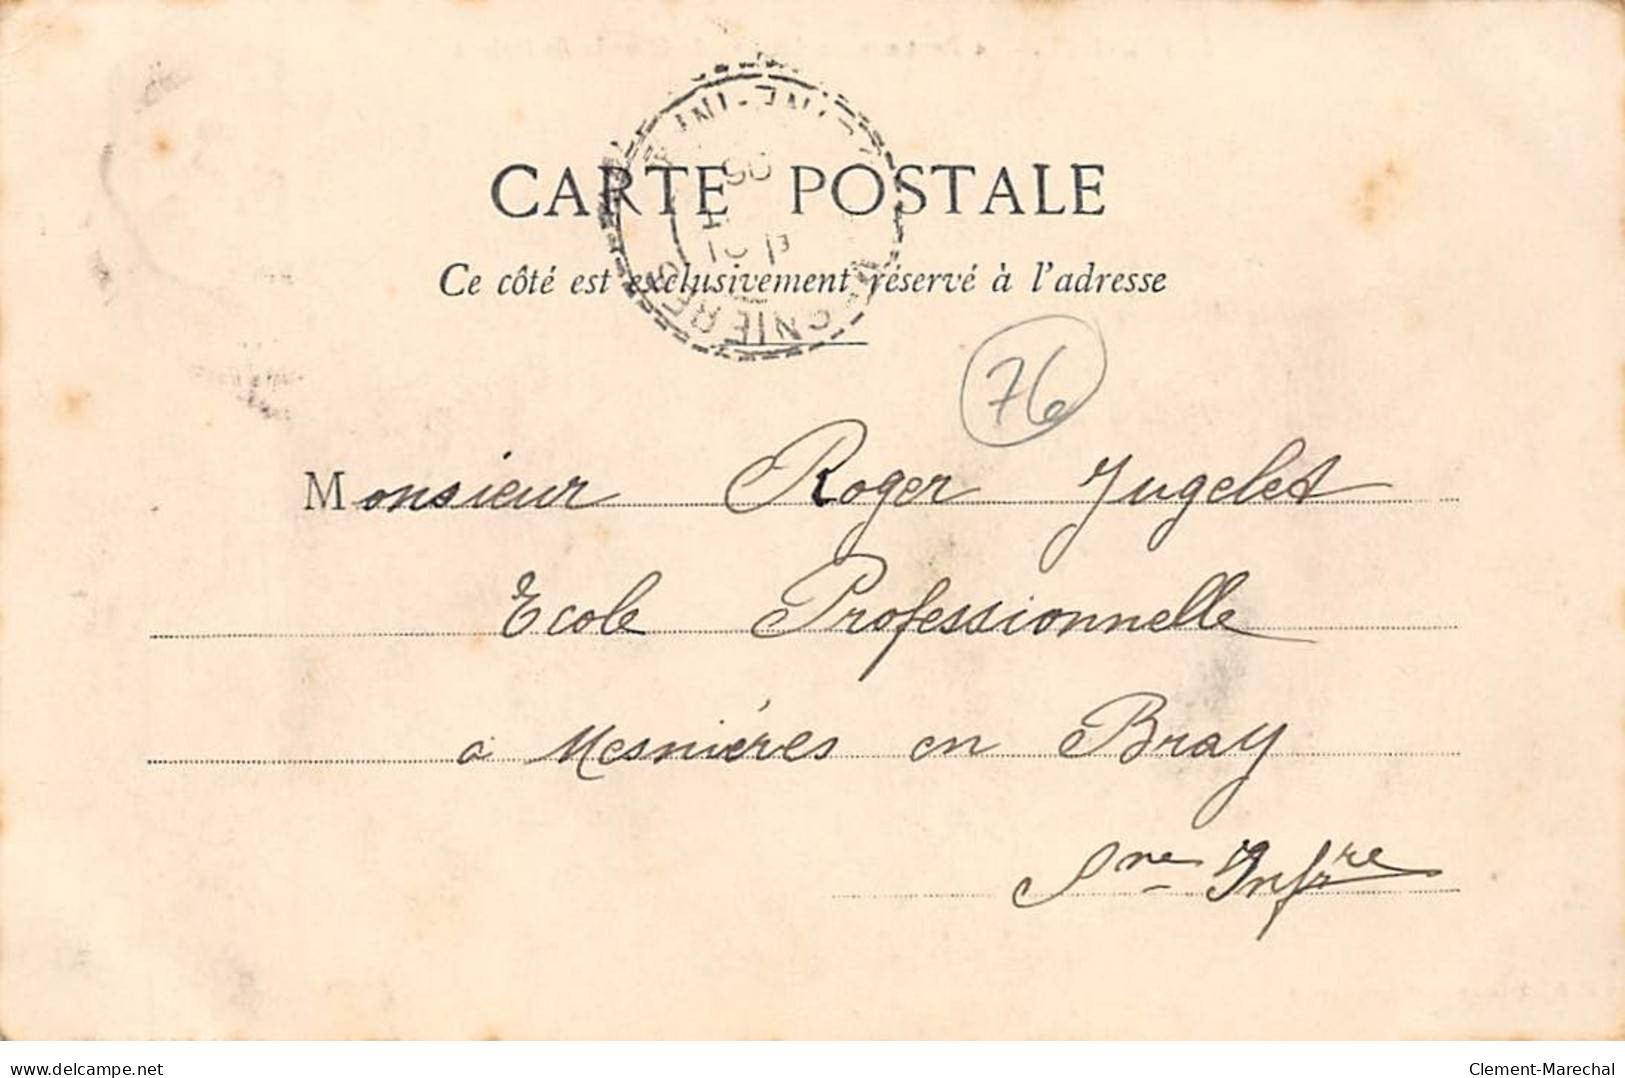 CARTE POSTALE
Ce côté est exclusivement réservé à l'adresse
76
Monsieur Roger Jugelet
Ecole Professionnelle
a Mesnières en Bray
Sne Infre
delcampe.net
Clement-Marechal